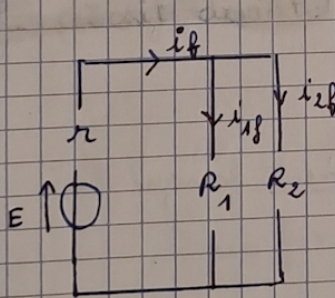 i_f
i_1f i_2f
r
R_1 R_2
E